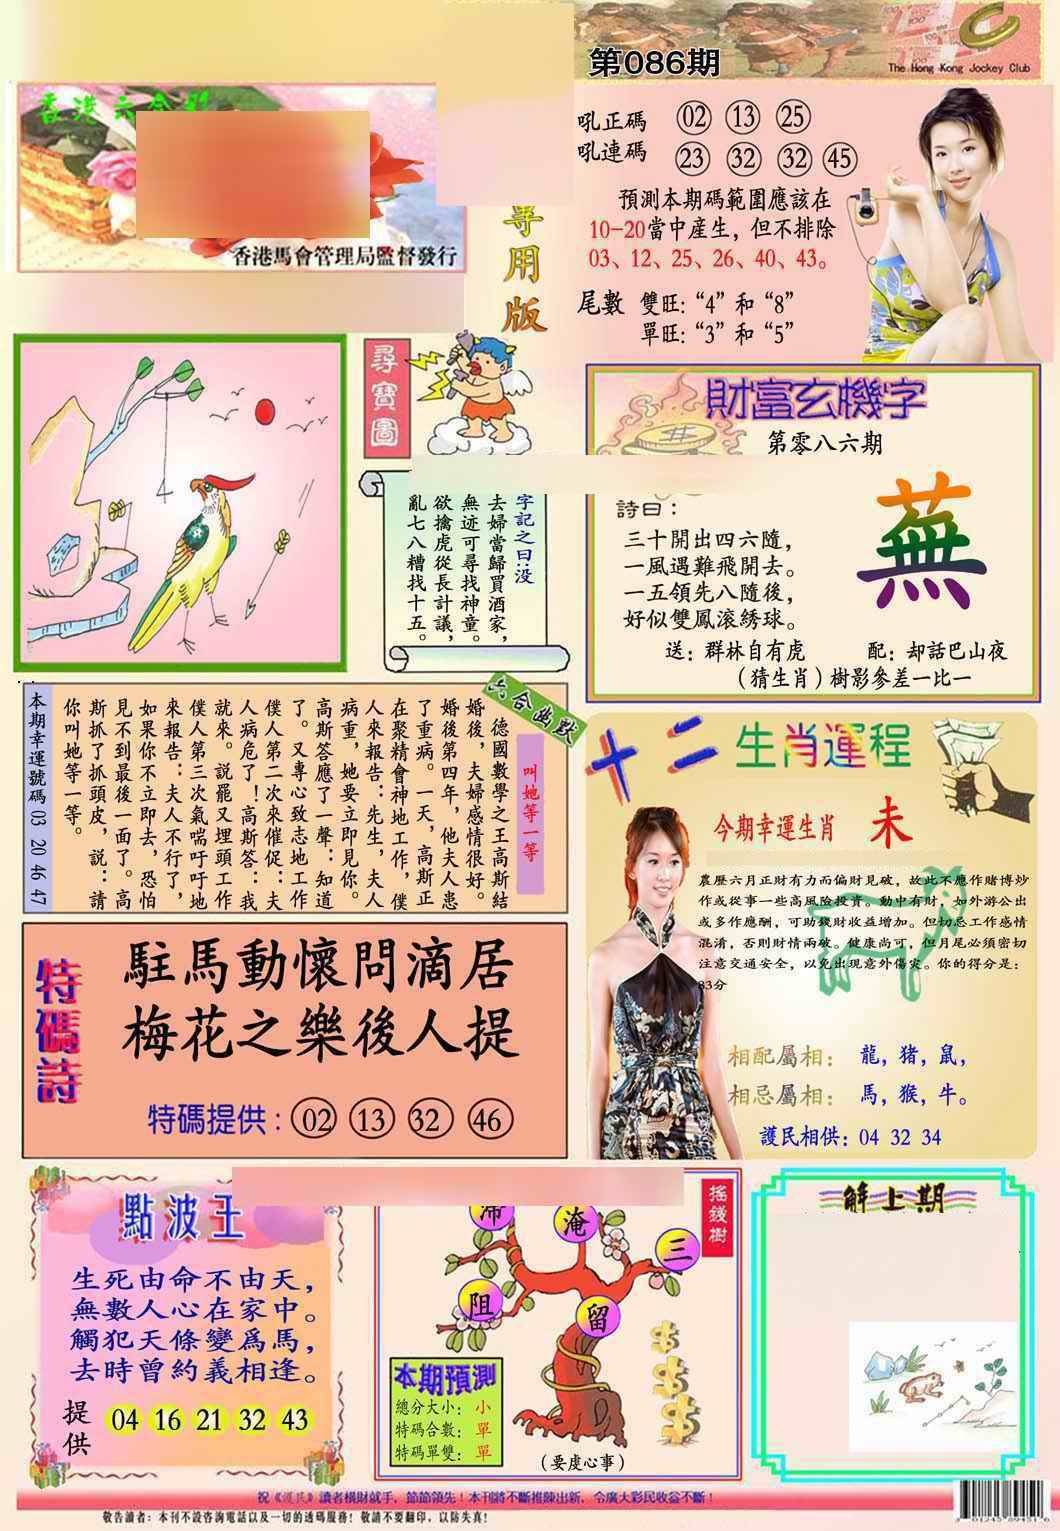 第086期
The Hong Kong Jockey Club
香港六合彩
香港馬會管理局監督發行
專用版
吼正碼 02 13 25
吼連碼 23 32 32 45
預測本期碼範圍應該在
10-20當中産生，但不排除
03、12、25、26、40、43。
尾數 雙旺：“4”和“8”
單旺：“3”和“5”
尋寶圖
字記之曰：没
去婦當歸買酒家，
無迹可尋找神童。
欲擒虎從長計議，
亂七八糟找十五。
財富玄機字
第零八六期
詩曰：
三十開出四六隨，
一風遇難飛開去。
一五領先八隨後，
好似雙鳳滚綉球。
蕪
送：群林自有虎 配：却話巴山夜
（猜生肖）樹影參差一比一
六合幽默
叫她等一等
德國數學之王高斯結
婚後，夫婦感情很好。
婚後第四年，他夫人患
了重病。一天，高斯正
在聚精會神地工作，僕
人來報告：先生，夫人
病重，她要立即見你。
高斯答應了一聲：知道
了。又專心致志地工作
僕人第二次來催促：夫
人病危了！高斯答：我
就來。説罷又埋頭工作
僕人第三次氣喘吁吁地
來報告：夫人不行了，
如果你不立即去，恐怕
見不到最後一面了。高
斯抓了抓頭皮，説：請
你叫她等一等。
本期幸運號碼 03 20 46 47
十二生肖運程
今期幸運生肖 未
農歷六月正財有力而偏財見破，故此不應作賭博炒
作或從事一些高風險投資。動中有財，如外游公出
或多作應酬，可助錢財收益增加。但切忌工作感情
混淆，否則財情兩破。健康尚可，但月尾必須密切
注意交通安全，以免出現意外傷灾。你的得分是：
83分
相配屬相： 龍，猪，鼠，
相忌屬相： 馬，猴，牛。
護民相供：04 32 34
特碼詩
駐馬動懷問滴居
梅花之樂後人提
特碼提供：02 13 32 46
點波王
生死由命不由天，
無數人心在家中。
觸犯天條變爲馬，
去時曾約義相逢。
提供 04 16 21 32 43
搖錢樹
滯
淹
三
阻
留
本期預測
總分大小：小
特碼合數：單
特碼單雙：單
（要虔心事）
解上期
祝《護民》讀者横財就手，節節領先！本刊將不斷推陳出新，令廣大彩民收益不斷！
敬告讀者：本刊不設咨詢電話以及一切的透碼服務！敬請不要翻印，以防失真！